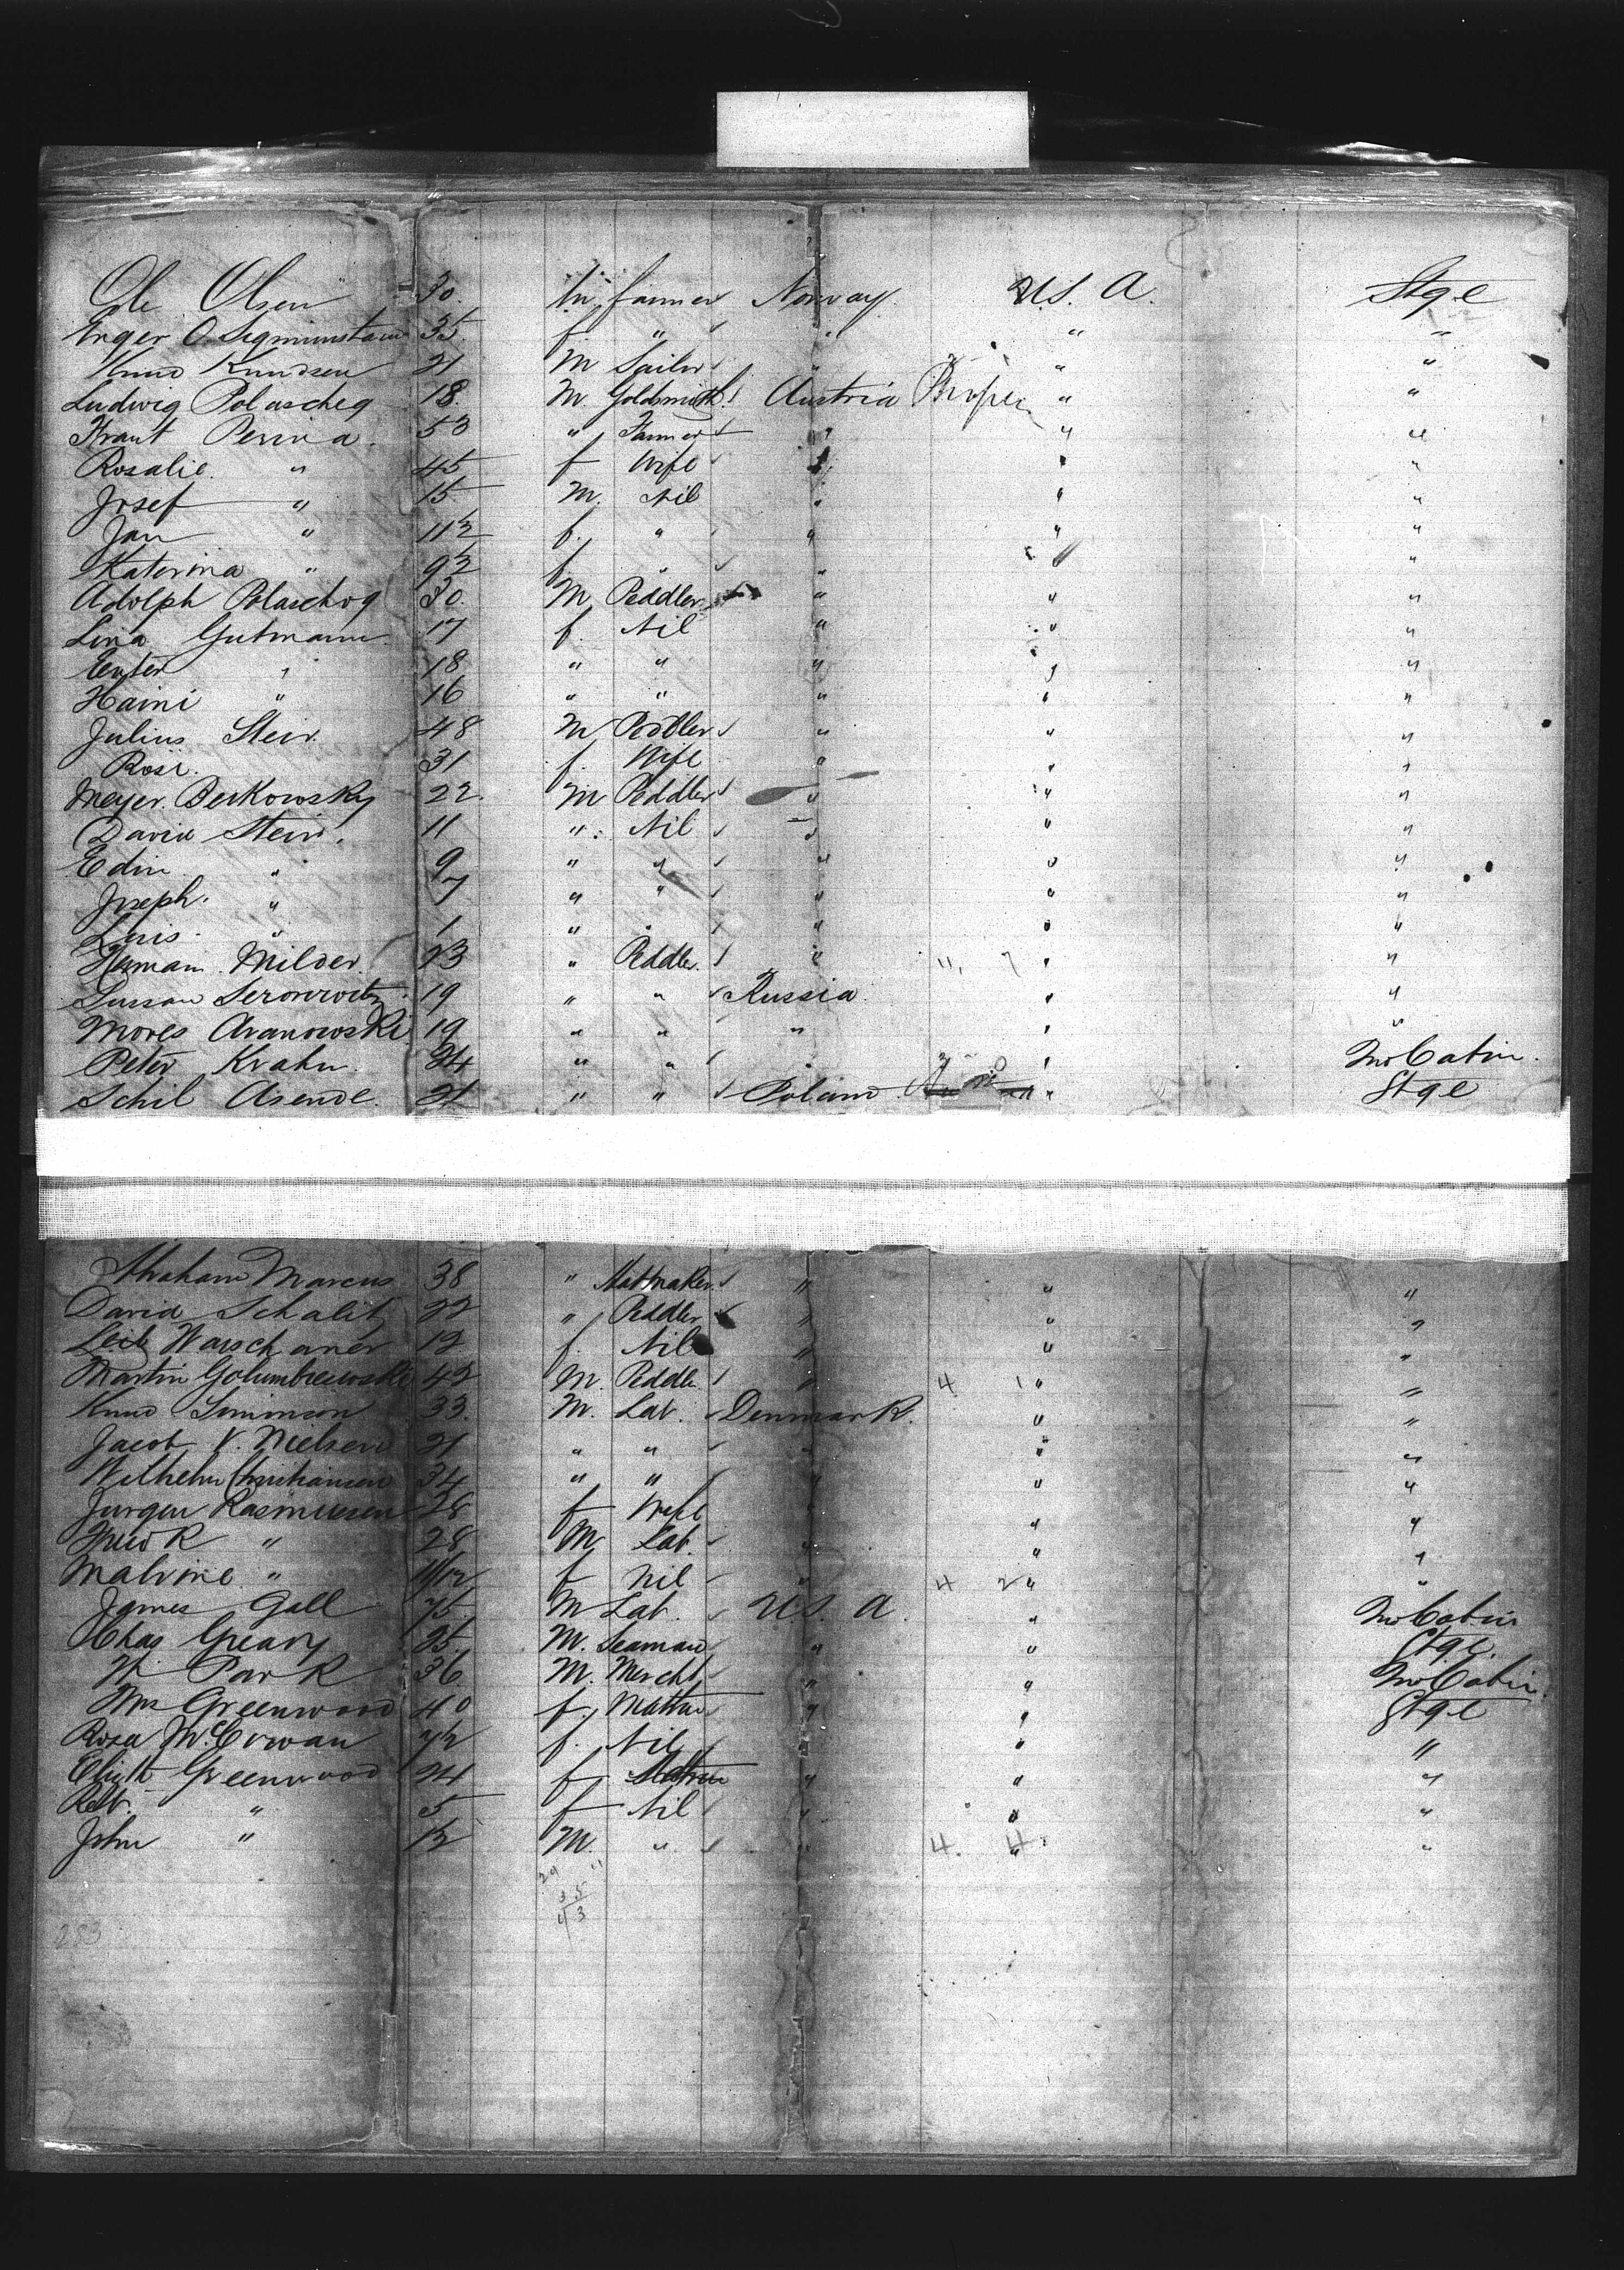 Ole Olsen 30. m farmer Norway. U.S. A. Stge
Inger O. Sigmunstaun 35. f " " " "
Knud Knudsen 21 M Sailor " " "
Ludwig Polascheg 18. M. Goldsmith Austria Proper " "
Perina. 53 " Farmer " " "
Rosalie. " 45 f Wife " " "
Josef " 15 M. Nil " " "
Jan " 11½ f. " " " "
Katerina " 9½ f. " " " "
Adolph Polaschog 30. M Peddler " " "
Lina Gutmann 17 f. Nil " " "
Ester " 18 " " " " "
Haini " 16 " " " " "
Julius Stein 48 M Peddler " " "
Rosi. 31 f. Wife " " "
Meyer. Berkowsky 22. M Peddler " " "
David Stein. 11 " Nil " " "
Edin. " 9 " " " " "
Joseph. " 7 " " " " "
Luis. " 1 " " " " "
Herman Milder 23 " Peddler. " 11, 7 " "
Serowroitz 19 " " Russia. " "
Moves Aranowski 19 " " " " "
Peter Krahn. 24 " " " " InCabin.
Schil Asende. 21 " " Poland " Stge
Abraham Marcus 38 " Hatmaker " " "
David Schalitz 22 " Peddler " " "
Leib Warschaner 12 f. Nil " " "
Martin Golumbrewski 42 M. Peddle " 4 1 " "
Knud Simonson 33. M. Lab. Denmark. " "
Jacob V. Nielsen 21 " " " " "
Wilhelm Christiansen 34 " " " " "
Jurgen Rasmussen 28 f Wife " " "
" 28 M Lab. " " "
Malvine " 11/12 f Nil " 4 2 " "
James Gall 75 M Lab. U.S. A. " InCabin
Chas Geary 25. M. Seaman " " Stge.
W. Park 36 M. Mercht " " InCabin.
Mrs Greenwood 40 f. Matron " " Stge
Rosa McErwan 72 f. Nil " " "
Elizth Greenwood 24 f. Matron " " "
Robt. " 5 f Nil " " "
John " 12 M. " " 4. 4 " "
29 11
35
43
283